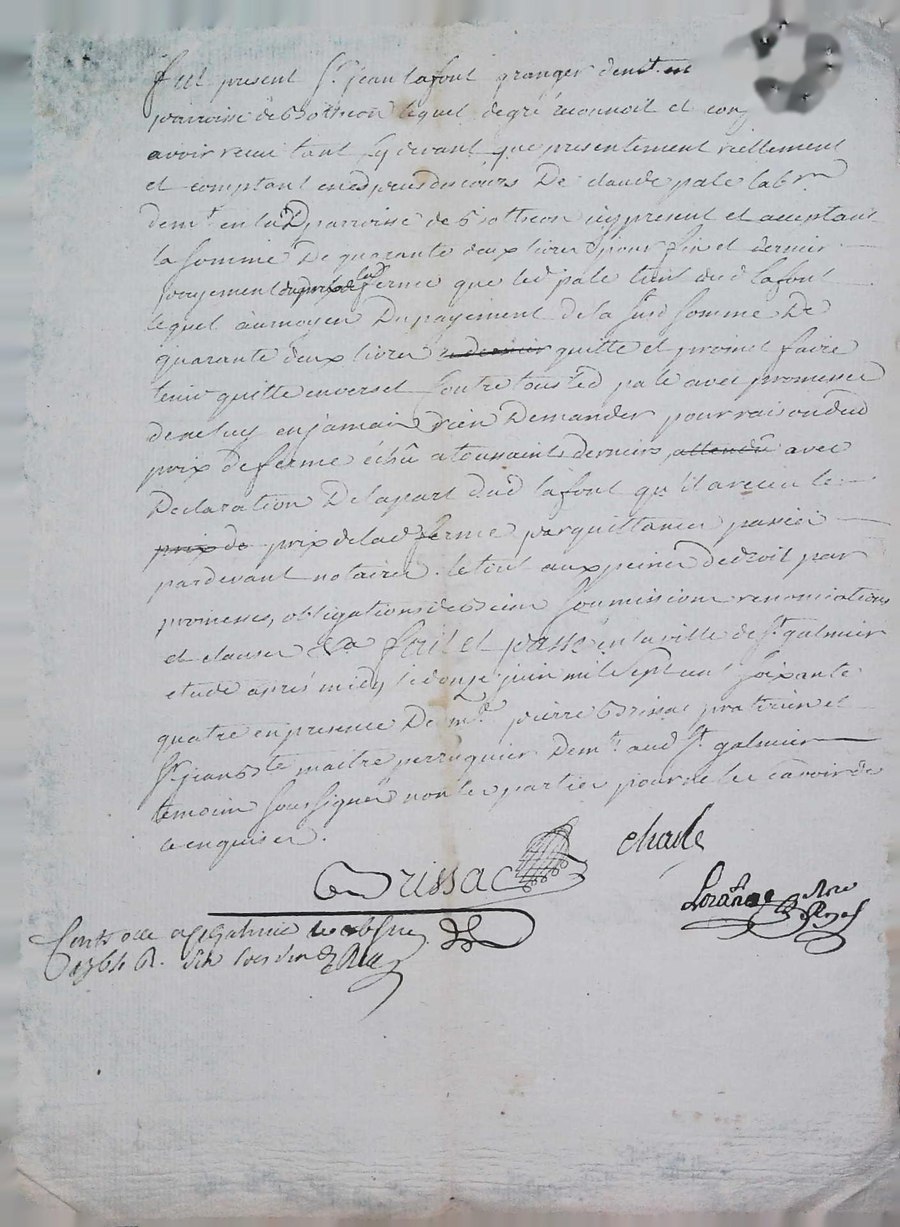 Fut present Sr. jean lafont granger demt. en
parroisse de Botheon lequel de gré reconnoit et
avoir receu tant cy devant que presentement reellement
et comptant en especes de cours De claude pale lab.
demt. en lad parroisse de Botheon icy present et aceptant
la somme De quarante deux livres pour fin et dernier
payement du prix de la ferme que led pale tient dud lafont
lequel aumoyen Dupayement de la susd somme De
quarante deux livres quitte et promet faire
tenir quitte envers et Contre tous led pale avec promesse
deneluy en jamais rien Demander pour raison dud
prix De ferme échû a toussaints derniers, attendû avec
Declaration Delapart dud lafont qu'il a receu le
prix de prix delad ferme par quittances passées
pardevant notaires. le tout aux peines dedroit par
promesses, obligations de biens Soumissions renonciations
et clauses &a fait et passé en la ville de St. galmier
etude après midy le douze juin mil sept cent soixante
quatre en presence De me. pierre Brissac praticien et
Sr. jean maitre perruquier Demt. aud St. galmier
temoins soussignés non les parties pour ne le savoir de
ce enquises.
Brissac chasle
Not Royal
Controllé a St Galmier le
1764 R.